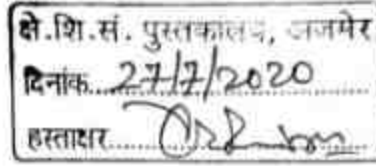 क्षे.शि.सं. पुस्तकालय, अजमेर
दिनांक...27/7/2020
हस्ताक्षर.....